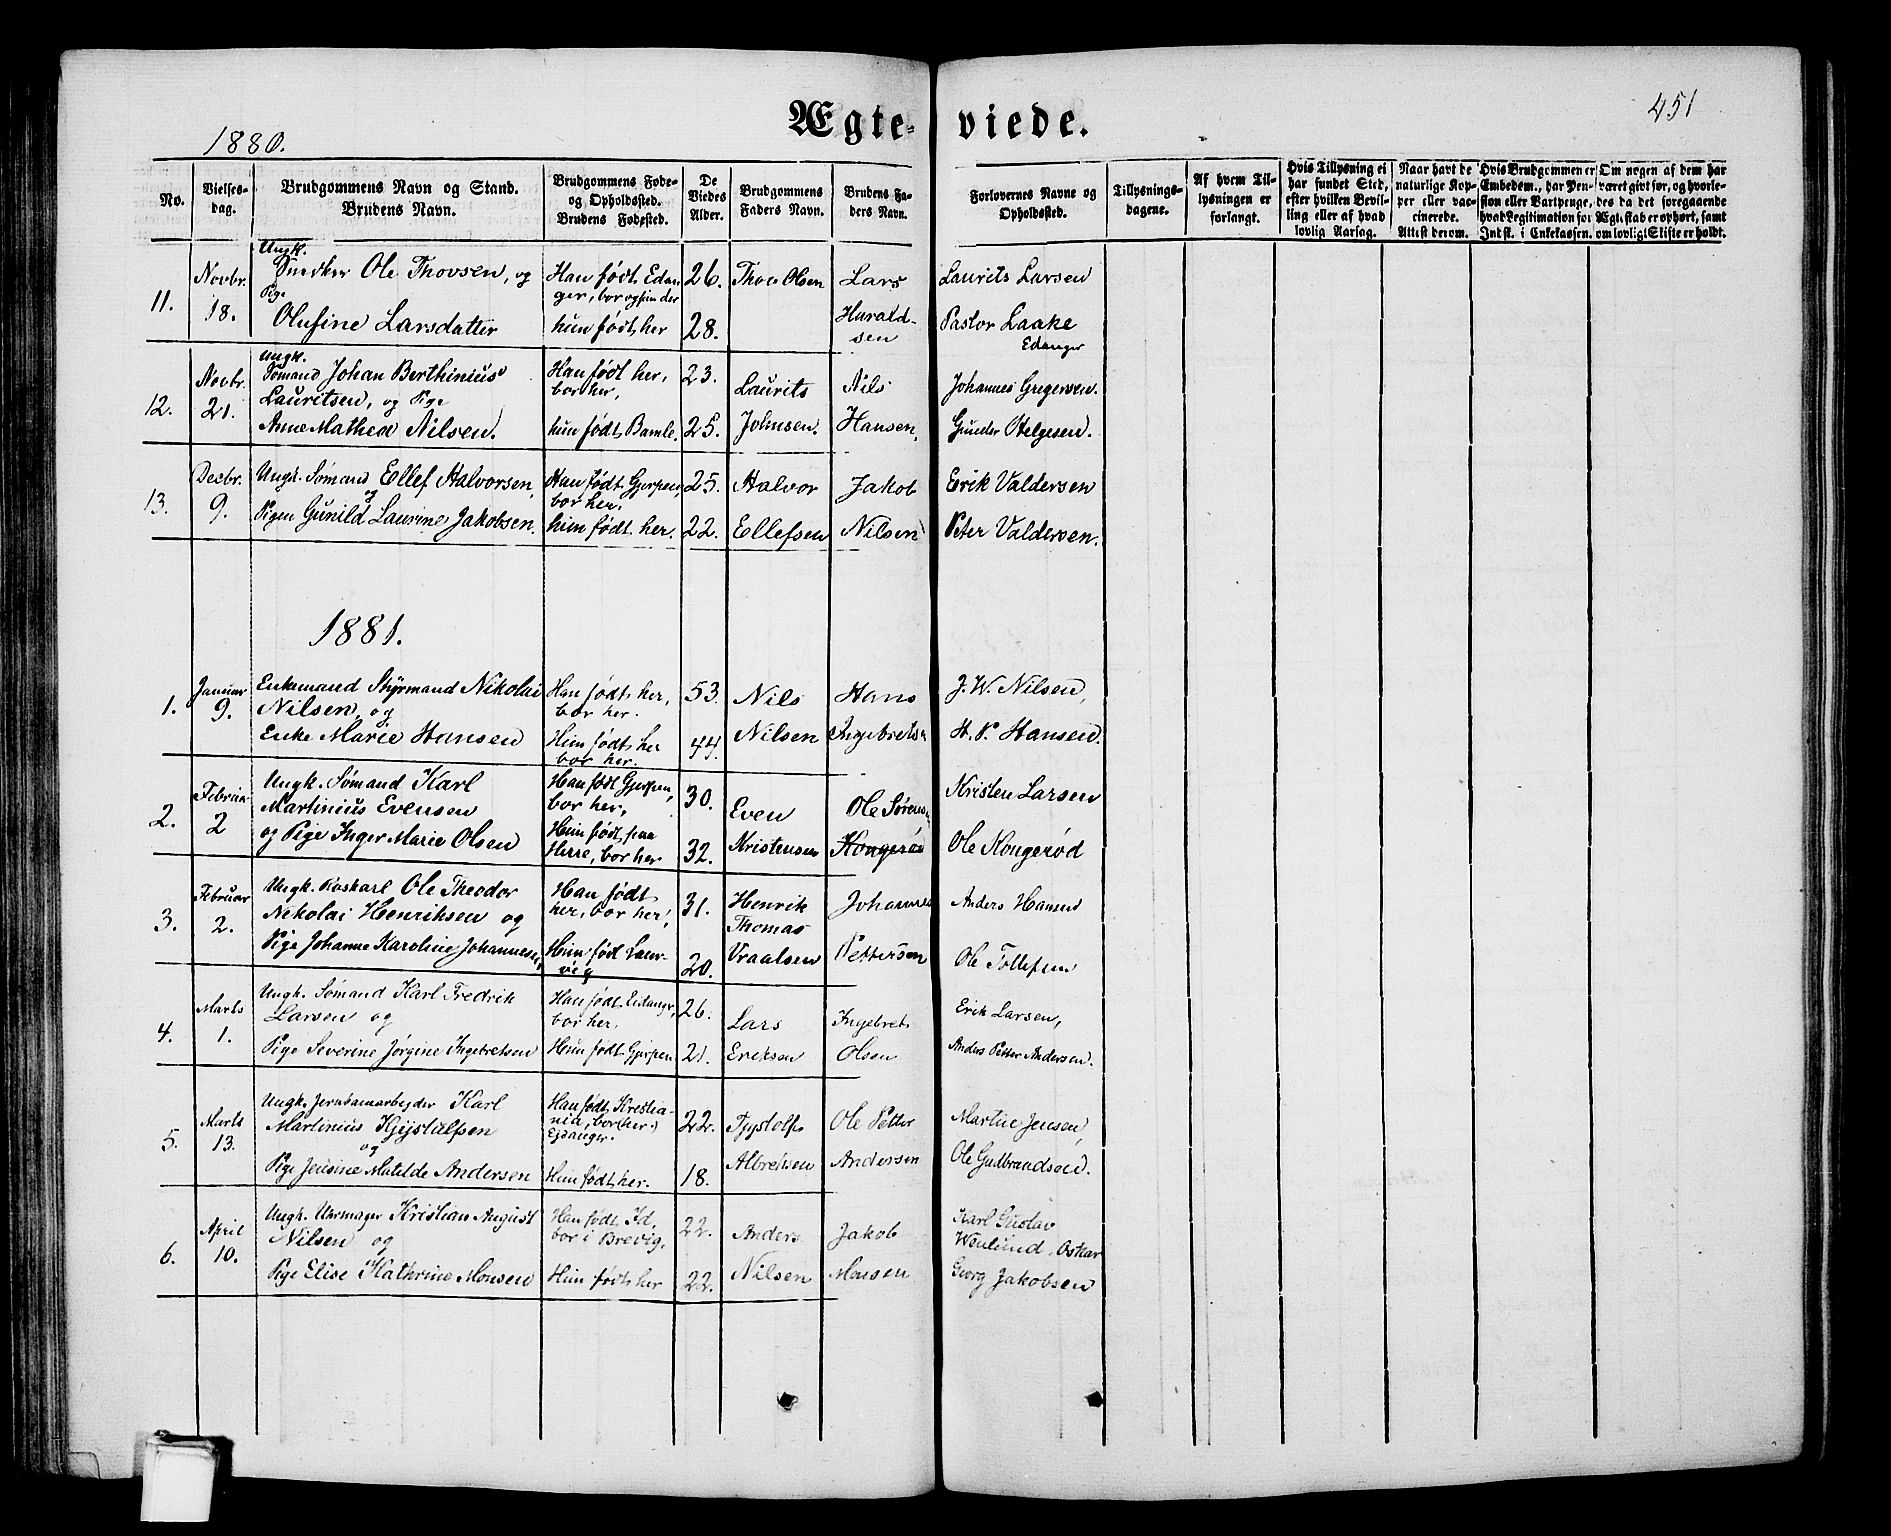 Ægte- viede.
451
1880.
No.
Vielses-
dag.
Brudgommens Navn og Stand.
Brudens Navn.
Brudgommens Føde-
og Opholdssted.
Brudens Fødested.
De
Viedes
Alder.
Brudgommens
Faders Navn.
Brudens Fa-
ders Navn.
Forlovernes Navne og
Opholdssted.
Tillysnings-
dagene.
Af hvem Til-
lysningen er
forlangt.
Hvis Tillysning ei
har fundet Sted,
efter hvilken Bevil-
ling eller af hvad
lovlig Aarsag.
Naar havt de
naturlige Kop-
per eller vac-
cinerede.
Attest derom.
Hvis Brudgommen er
Embedsm., har Pen-
sion eller Vartpenge,
hvad Legitimation for
Indsk. i Enkekassen.
Om nogen af dem har
været gift før, og hvorle-
des da det foregaaende
Ægteskab er ophørt, samt
om lovligt Skifte er holdt.
11.
Novbr.
18.
Ungk.
Snedker Ole Thovsen, og
Pige
Olufine Larsdatter
Han født Edan
ger, bor
hun født her
26.
28.
Thov Olsen
Lars
Harald-
sen
Laurits Larsen
Pastor Laake
Edanger
12.
Novbr.
21.
Ungk.
Sømand Johan Berthinius
Lauritsen, og Pige
Anne Mathea Nilsen.
Han født her,
bor her,
hun født Bamle.
23.
25.
Laurits
Johnsen.
Nils
Hansen,
Johannes Gregersen.
Gunder Helgesen.
13.
Decbr.
9.
Ungk. Sømand Ellef Halvorsen,
og
Pigen Gunild Laurine Jakobsen.
Han født Gjerpen,
bor her.
hun født her.
25.
22.
Halvor
Ellefsen
Jakob
Nilsen
Erik Valdersen
Peter Valdersen.
1881.
1.
Januar
9.
Enkemand Styrmand Nikolai
Nilsen, og
Enke Marie Hansen
Han født her,
bor her.
Hun født her
bor her.
53.
44.
Nils
Nilsen
Hans
Ingebretsn
J. W. Nilsen,
H. P. Hansen.
2.
Februar
2
Ungk. Sømand Karl
Martinius Evensen
og Pige Inger Marie Olsen
Han født Gjerpen,
bor her,
Hun født paa
Herre, bor her
30.
32.
Even
Kristensen
Ole Sørens
Kongerød
Kristen Larsen
Ole Kongerød
3.
Februar
2.
Ungk. Ole Theodor
Nikolai Henriksen og
Pige Johanne Karoline Johannesen,
Han født
her, bor her,
Hun født Laur-
vig
31.
20.
Henrik
Thomas
Vraalsen
Johannes
Pettersen
Anders Hansen
Ole Tollefsen
4.
Marts
1.
Ungk. Sømand Karl Fredrik
Larsen og
Pige Severine Jørgine Ingebretsen
Han født Eidanger,
bor her.
Hun født Gjerpen
26.
21.
Lars
Eriksen
Ingebret
Olsen
Erik Larsen,
Anders Petter Andersen.
5.
Marts
13.
Ungk. Jernbanearbejder Karl
Martinius
og
Pige Jensine Matilde Andersen
Han født Kristia-
nia, bor (her)
Ejdanger.
Hun født her.
22.
18.
Ole Petter
Andersen
Jensen,
Ole Gudbrandsen.
6.
April
10.
Ungk. Uhrmager Kristian August
Nilsen og
Pige Elise Kathrine Monsen
Han født Id,
bor i Brevig.
Hun født her
22.
22.
Anders
Nilsen
Jakob
Monsen
Karl Gustav
Wenlund, Oskar
Georg Jakobsen